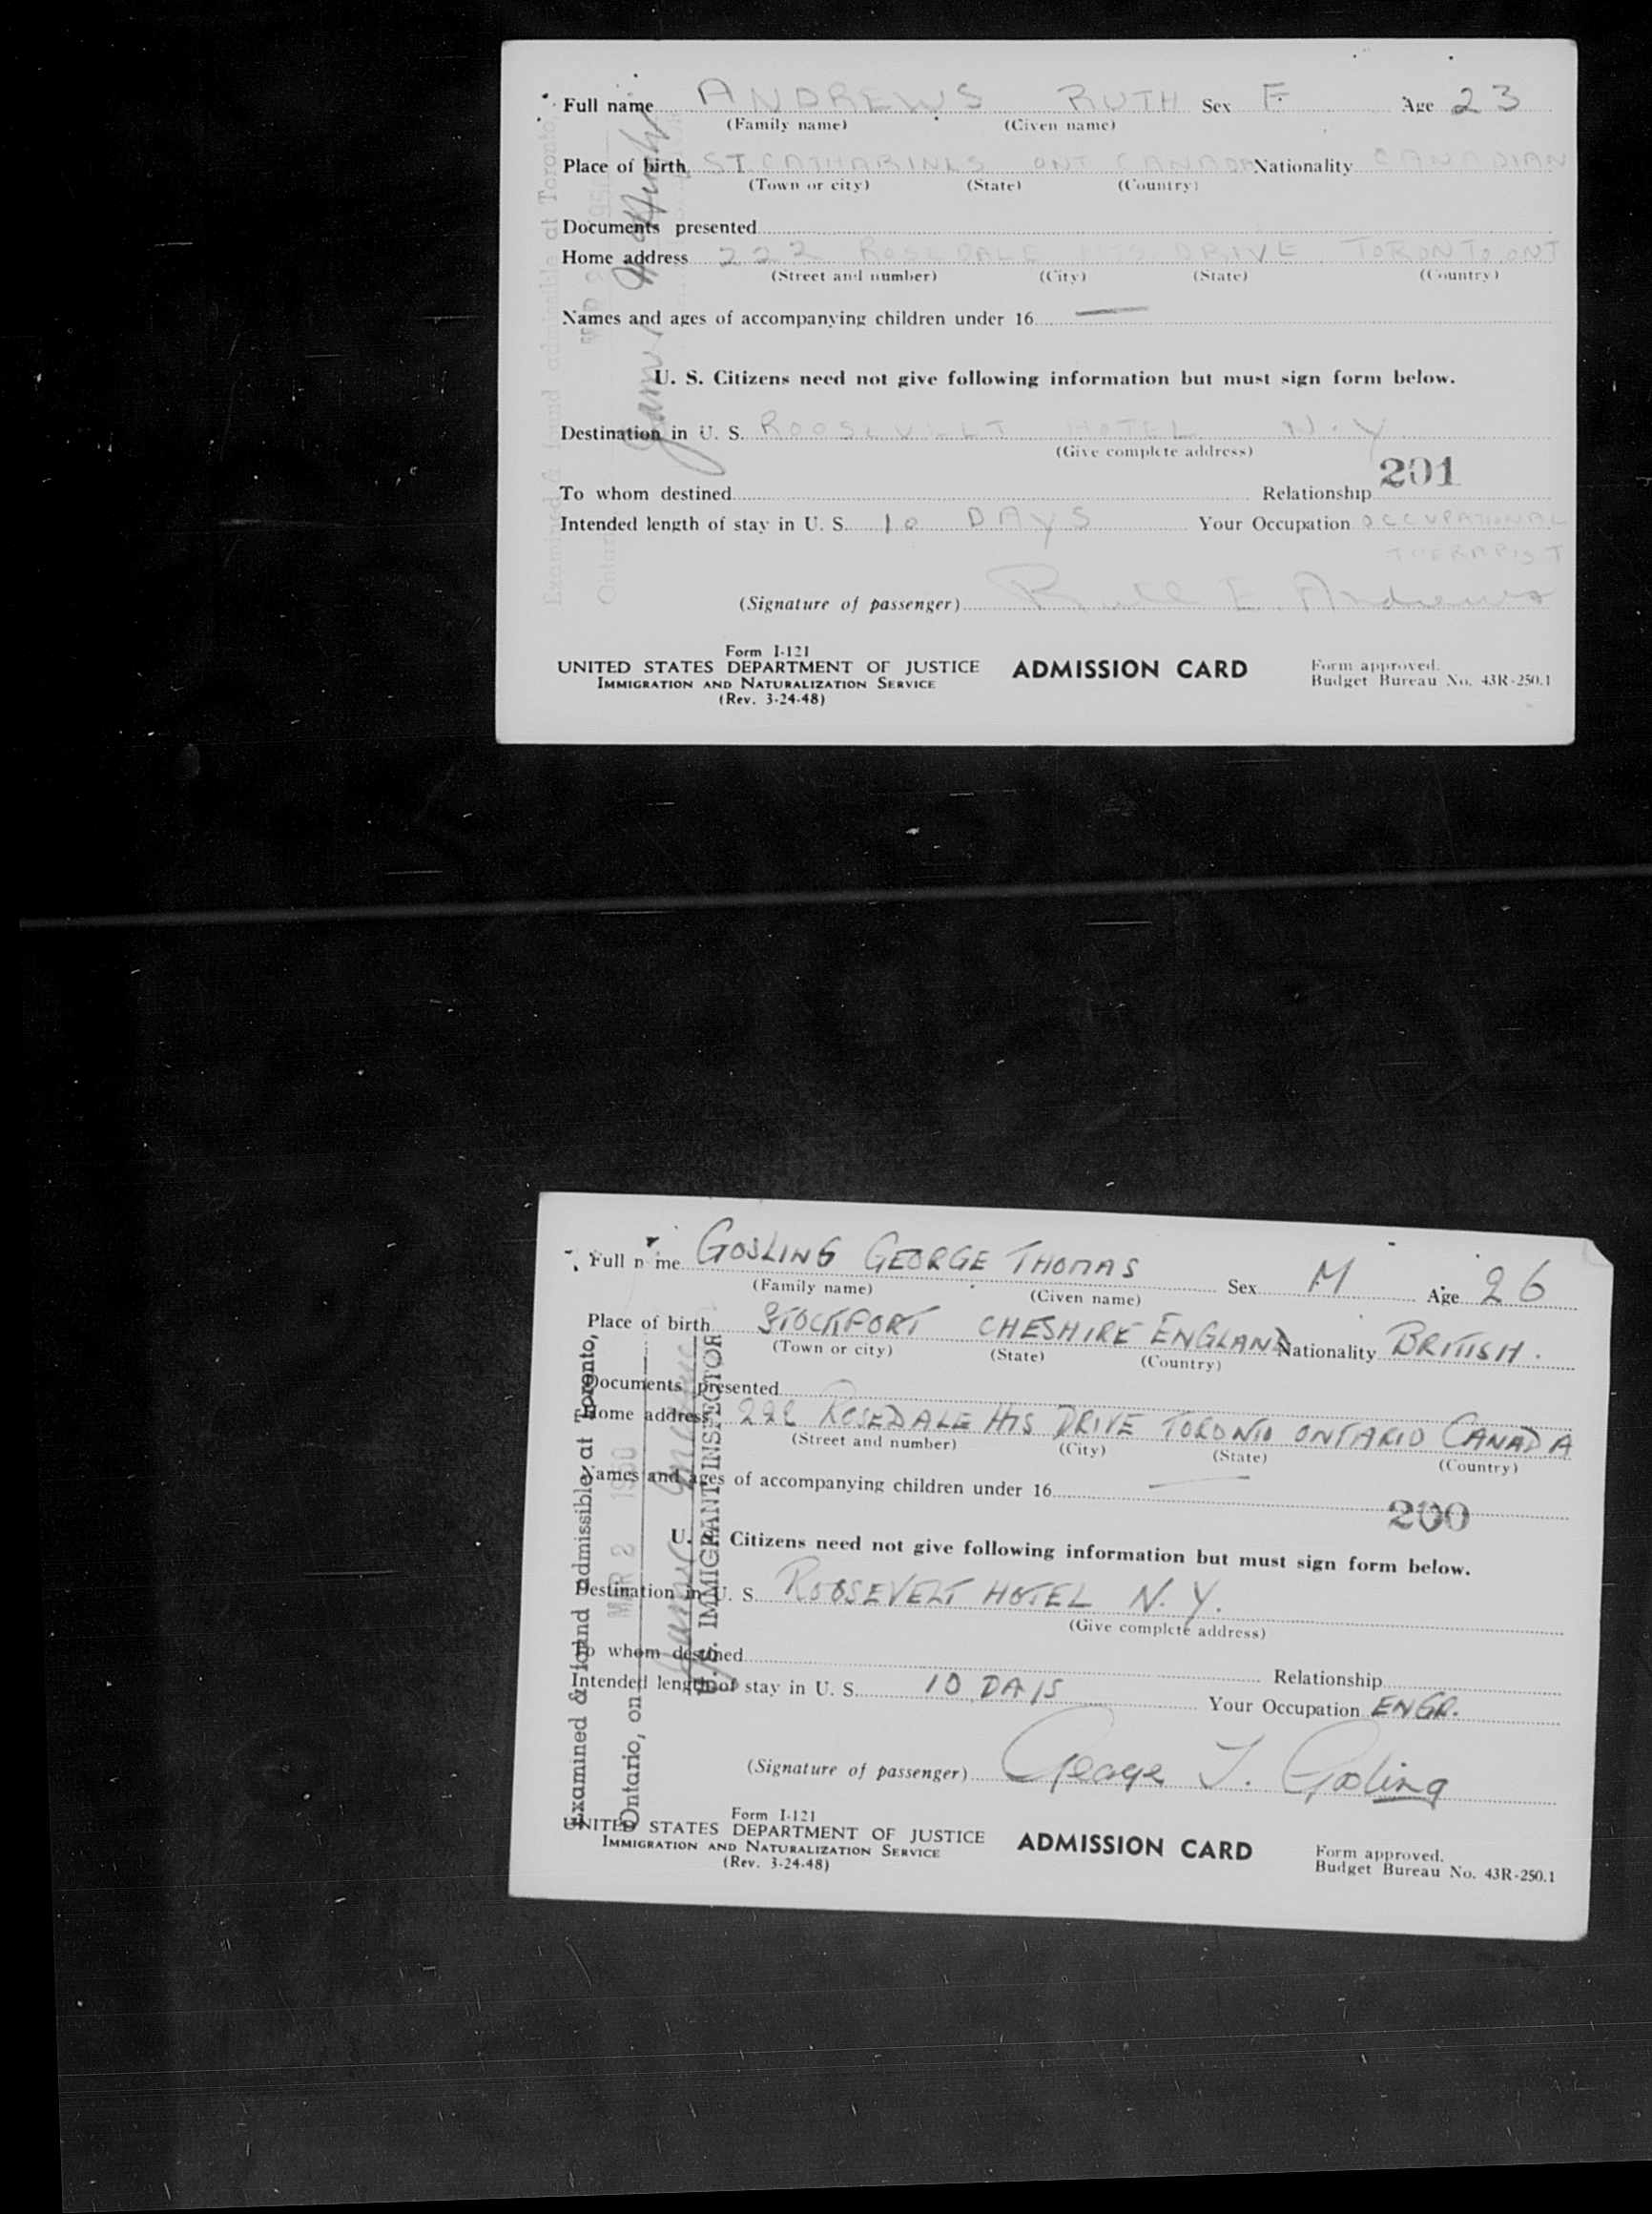 Full name ANDREWS RUTH Sex F. Age 23
(Family name) (Given name)
Place of birth ST. CATHARINES ONT CANADA Nationality CANADIAN
(Town or city) (State) (Country)
Documents presented
Home address 222 ROSEDALE HTS DRIVE TORONTO ONT
(Street and number) (City) (State) (Country)
Names and ages of accompanying children under 16 —
U. S. Citizens need not give following information but must sign form below.
Destination in U. S. ROOSEVELT HOTEL N.Y
(Give complete address)
201
To whom destined Relationship
Intended length of stay in U. S. 10 DAYS Your Occupation OCCUPATIONAL
THERAPIST
(Signature of passenger) Ruth E. Andrews
Form I-121
UNITED STATES DEPARTMENT OF JUSTICE ADMISSION CARD Form approved.
IMMIGRATION AND NATURALIZATION SERVICE Budget Bureau No. 43R-250.1
(Rev. 3-24-48)
Examined & found admissible at Toronto,
Ontario
Full name GOSLING GEORGE THOMAS Sex M Age 26
(Family name) (Given name)
Place of birth STOCKPORT CHESHIRE ENGLAND Nationality BRITISH.
(Town or city) (State) (Country)
Documents presented
Home address 222 ROSEDALE HTS DRIVE TORONTO ONTARIO CANADA
(Street and number) (City) (State) (Country)
Names and ages of accompanying children under 16 —
200
U. S. Citizens need not give following information but must sign form below.
Destination in U. S. ROOSEVELT HOTEL N. Y.
(Give complete address)
To whom destined Relationship
Intended length of stay in U. S. 10 DAYS Your Occupation ENGR.
(Signature of passenger) George T. Gosling
Form I-121
UNITED STATES DEPARTMENT OF JUSTICE ADMISSION CARD Form approved.
IMMIGRATION AND NATURALIZATION SERVICE Budget Bureau No. 43R-250.1
(Rev. 3-24-48)
Examined & found admissible at Toronto,
Ontario, on MAR 2 1950
U.S. IMMIGRANT INSPECTOR